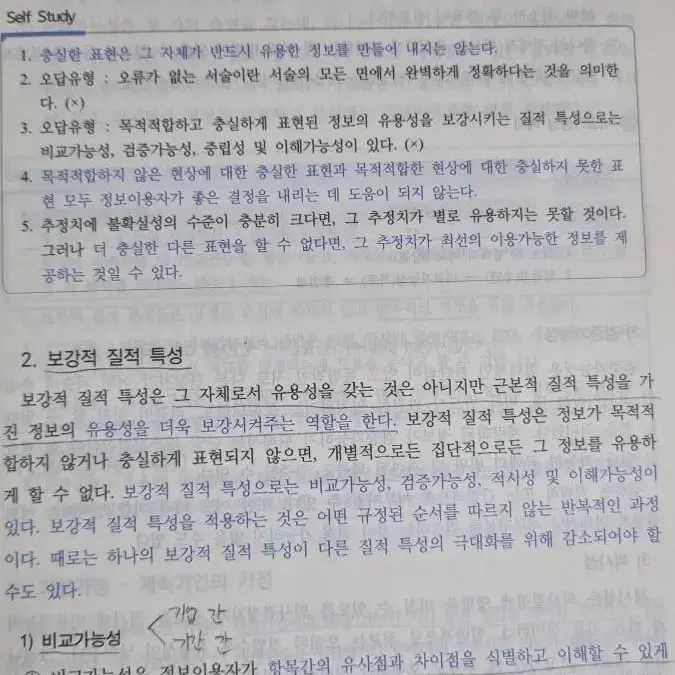 Self Study
1. 충실한 표현은 그 자체가 반드시 유용한 정보를 만들어 내지는 않는다.
2. 오답유형 : 오류가 없는 서술이란 서술의 모든 면에서 완벽하게 정확하다는 것을 의미한
다. (×)
3. 오답유형 : 목적적합하고 충실하게 표현된 정보의 유용성을 보강시키는 질적 특성으로는
비교가능성, 검증가능성, 중립성 및 이해가능성이 있다. (×)
4. 목적적합하지 않은 현상에 대한 충실한 표현과 목적적합한 현상에 대한 충실하지 못한 표
현 모두 정보이용자가 좋은 결정을 내리는 데 도움이 되지 않는다.
5. 추정치에 불확실성의 수준이 충분히 크다면, 그 추정치가 별로 유용하지는 못할 것이다.
그러나 더 충실한 다른 표현을 할 수 없다면, 그 추정치가 최선의 이용가능한 정보를 제
공하는 것일 수 있다.
2. 보강적 질적 특성
보강적 질적 특성은 그 자체로서 유용성을 갖는 것은 아니지만 근본적 질적 특성을 가
진 정보의 유용성을 더욱 보강시켜주는 역할을 한다. 보강적 질적 특성은 정보가 목적적
합하지 않거나 충실하게 표현되지 않으면, 개별적으로든 집단적으로든 그 정보를 유용하
게 할 수 없다. 보강적 질적 특성으로는 비교가능성, 검증가능성, 적시성 및 이해가능성이
있다. 보강적 질적 특성을 적용하는 것은 어떤 규정된 순서를 따르지 않는 반복적인 과정
이다. 때로는 하나의 보강적 질적 특성이 다른 질적 특성의 극대화를 위해 감소되어야 할
수도 있다.
기업 간
1) 비교가능성
기간 간
① 비교가능성은 정보이용자가 항목간의 유사점과 차이점을 식별하고 이해할 수 있게